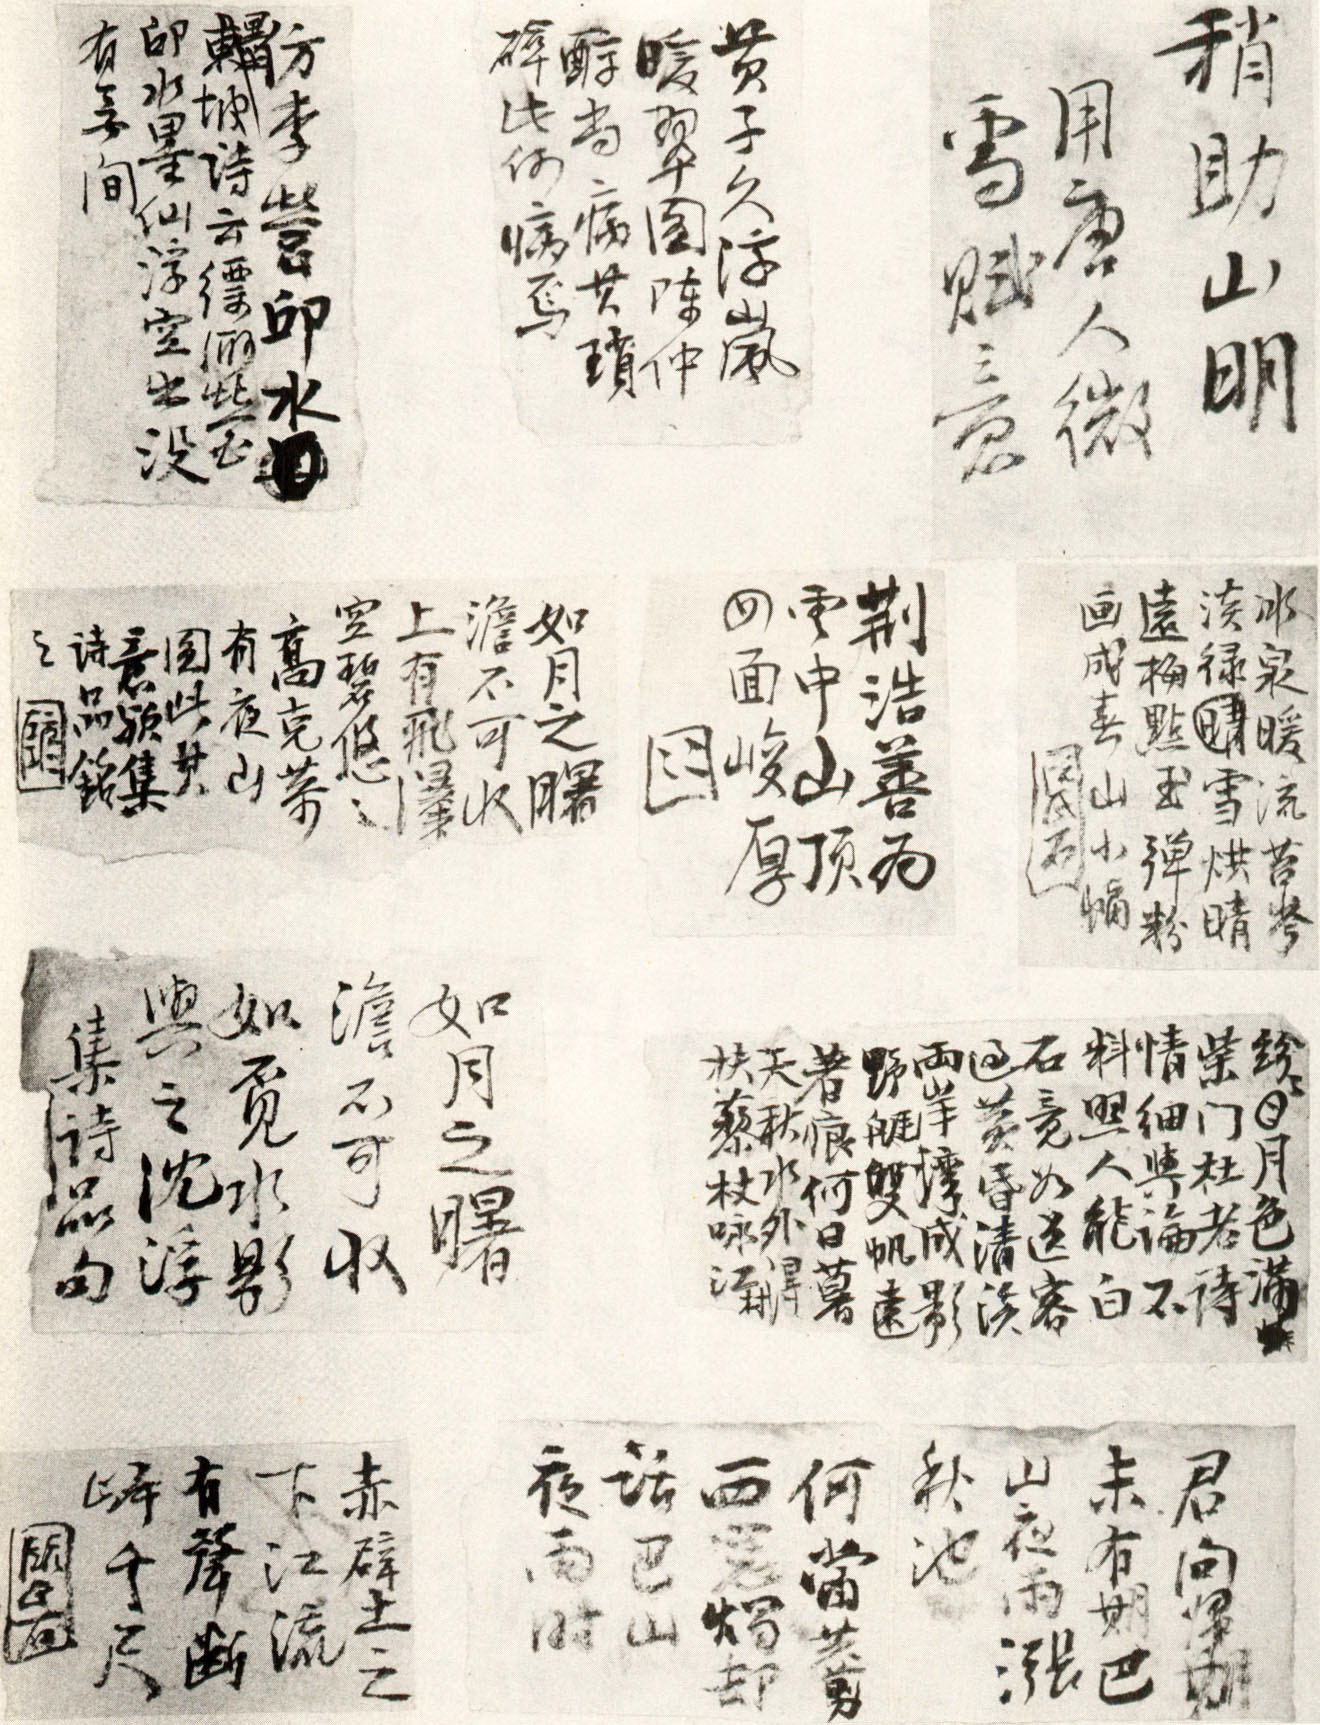 稍助山明
用唐人微
雪赋意
黄子久浮岚
暖翠图陈仲
醇尚病其琐
碎此何病焉
方李营邱水
東坡诗云缥缈营
邱水墨仙浮空出没
有无间
冰泉暖流苔岑
淡绿晴雪烘晴
遠梅點玉弹粉
画成春山小幅
荆浩善为
雲中山顶
四面峻厚
如月之曙
澹不可收
上有飛瀑
空碧悠々
高克恭
有夜山
图此其
意颖集
诗品銘
之
纷々日月色满
柴门杜老诗
情细與論不
料照人能白
石竟如送客
过黄昏清淡
兩岸撑成影
野艇雙帆遠
著痕何日暮
天秋水外得
扶藜杖咏江
如月之曙
澹不可收
如觅水影
與之沈浮
集詩品句
君问归期
未有期巴
山夜雨漲
秋池
何當共剪
西窓燭却
话巴山
夜雨时
赤壁土之
下江流
有聲断
岸千尺